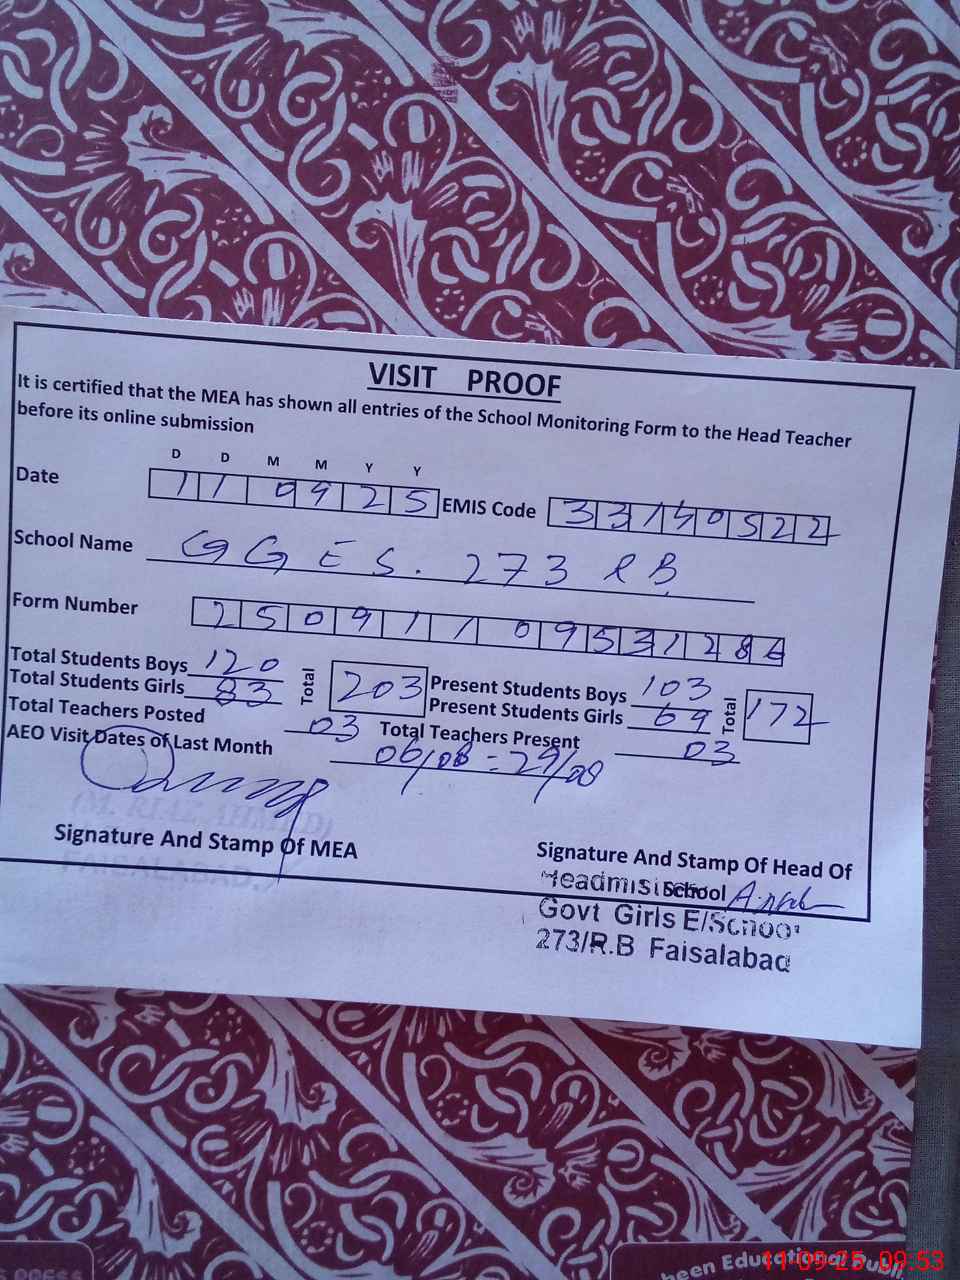 VISIT PROOF
It is certified that the MEA has shown all entries of the School Monitoring Form to the Head Teacher
before its online submission
D D M M Y Y
Date 110925 EMIS Code 33140522
School Name GGES. 273 RB
Form Number 250911095312
Total Students Boys 120 Total 203 Present Students Boys 103 Total 172
Total Students Girls 83 Present Students Girls 69
Total Teachers Posted 03 Total Teachers Present 03
AEO Visit Dates of Last Month 06/08 = 29/08
(M. RIAZ AHMED)
Signature And Stamp Of MEA
FAISALABAD.
Signature And Stamp Of Head Of
School
Headmistress
Govt Girls E/School
273/R.B Faisalabad
Educational
11-09-25 09:53